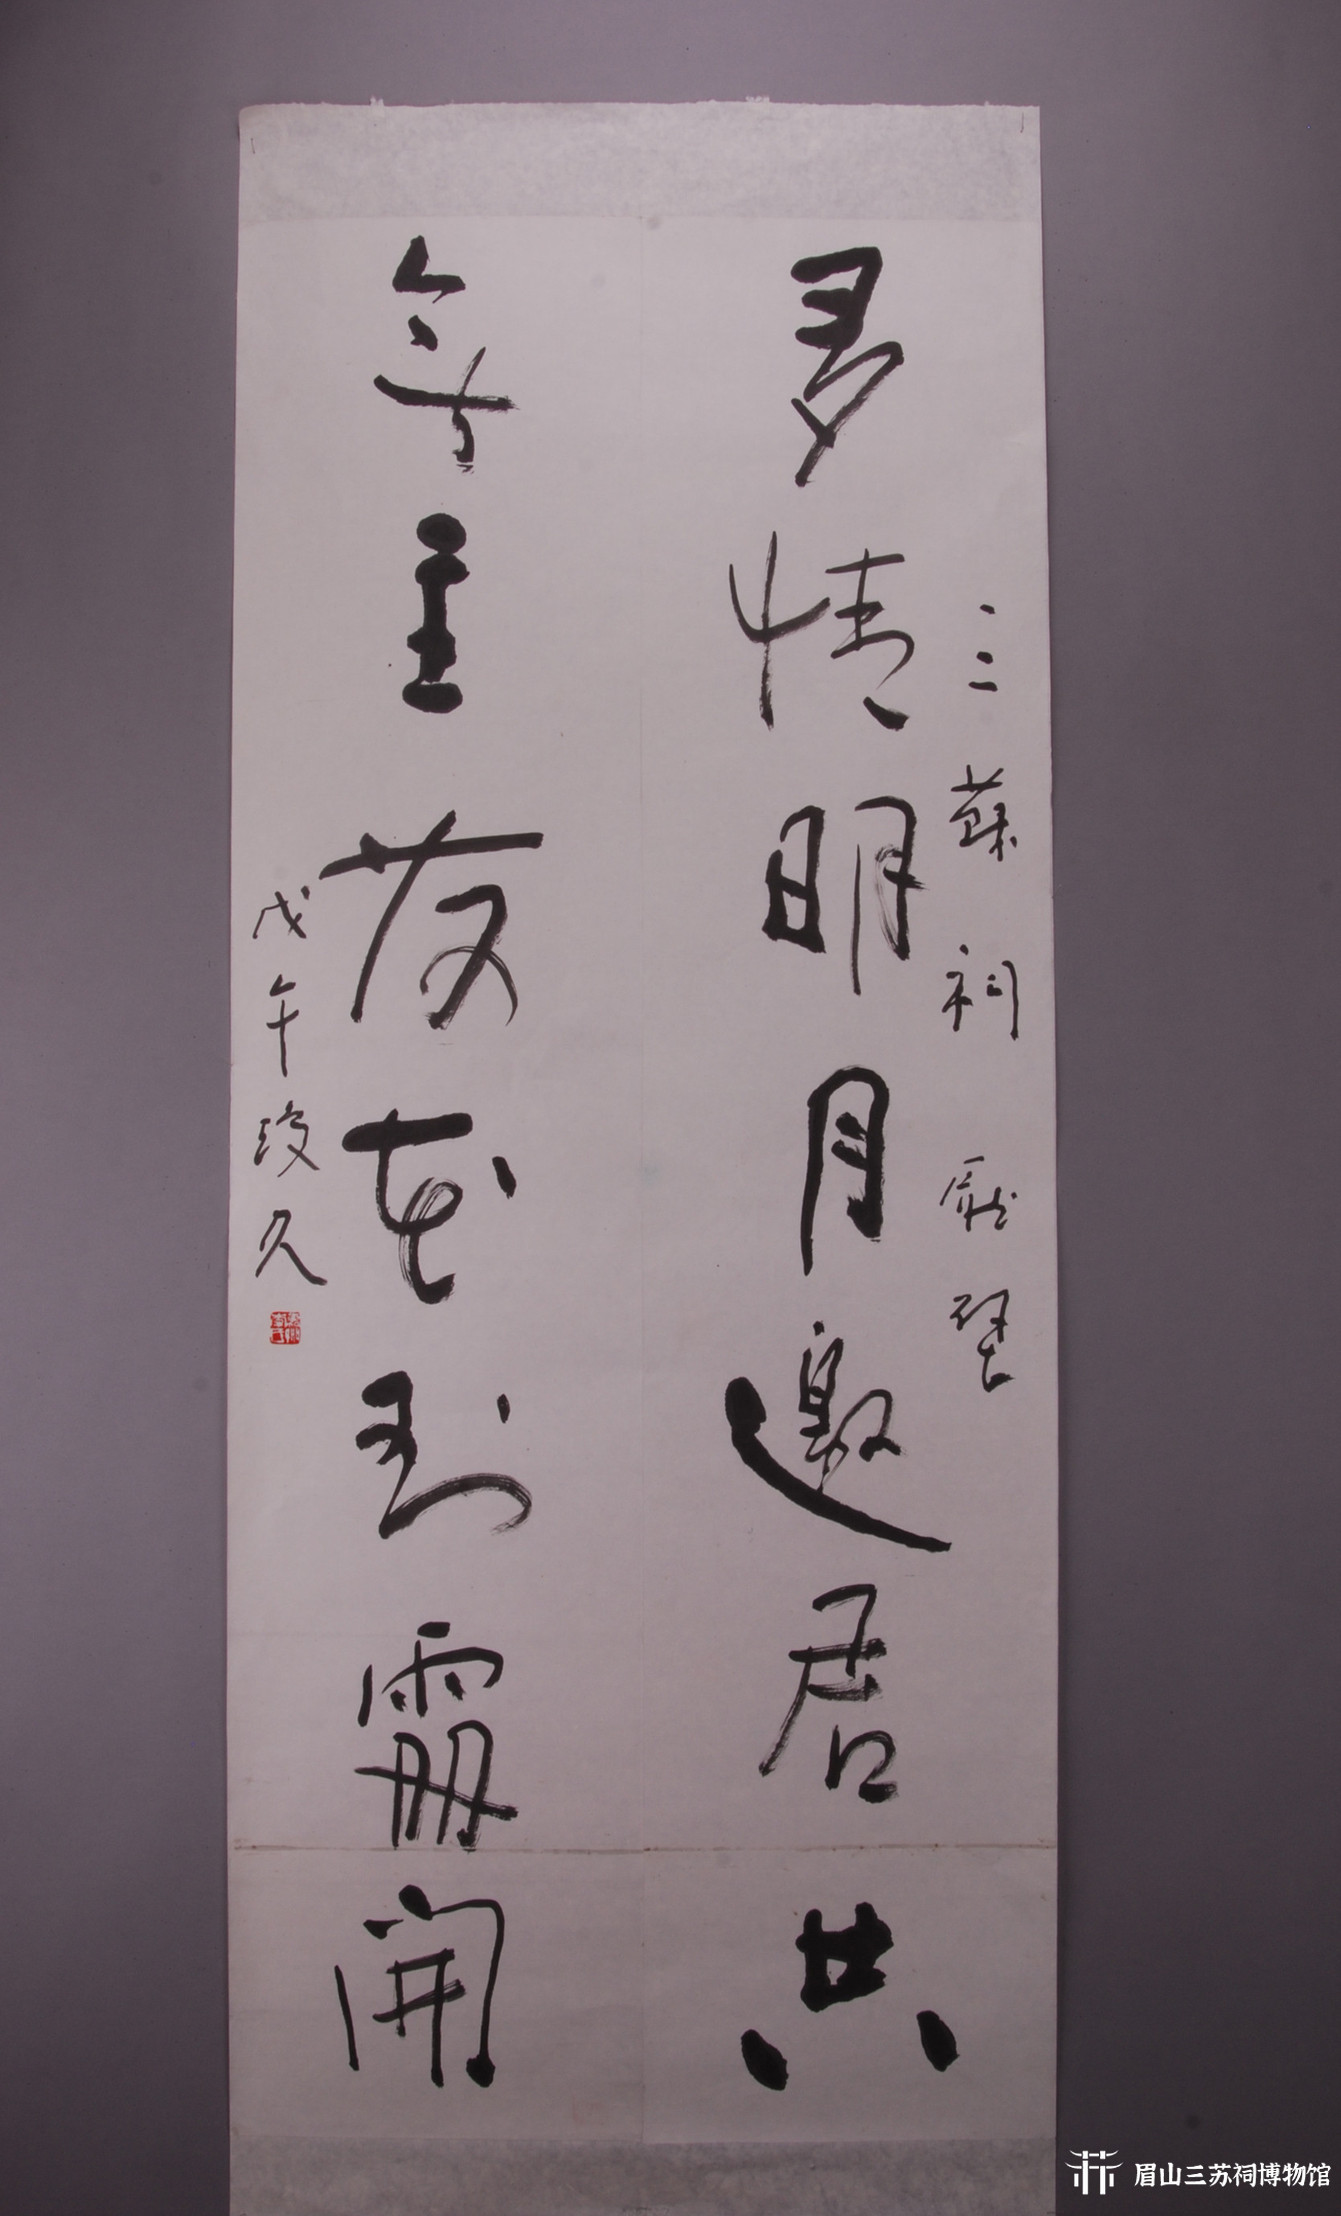 三蘇祠 壁
多情明月邀君共
無主荷花到處開
戊午瓊久
眉山三苏祠博物馆